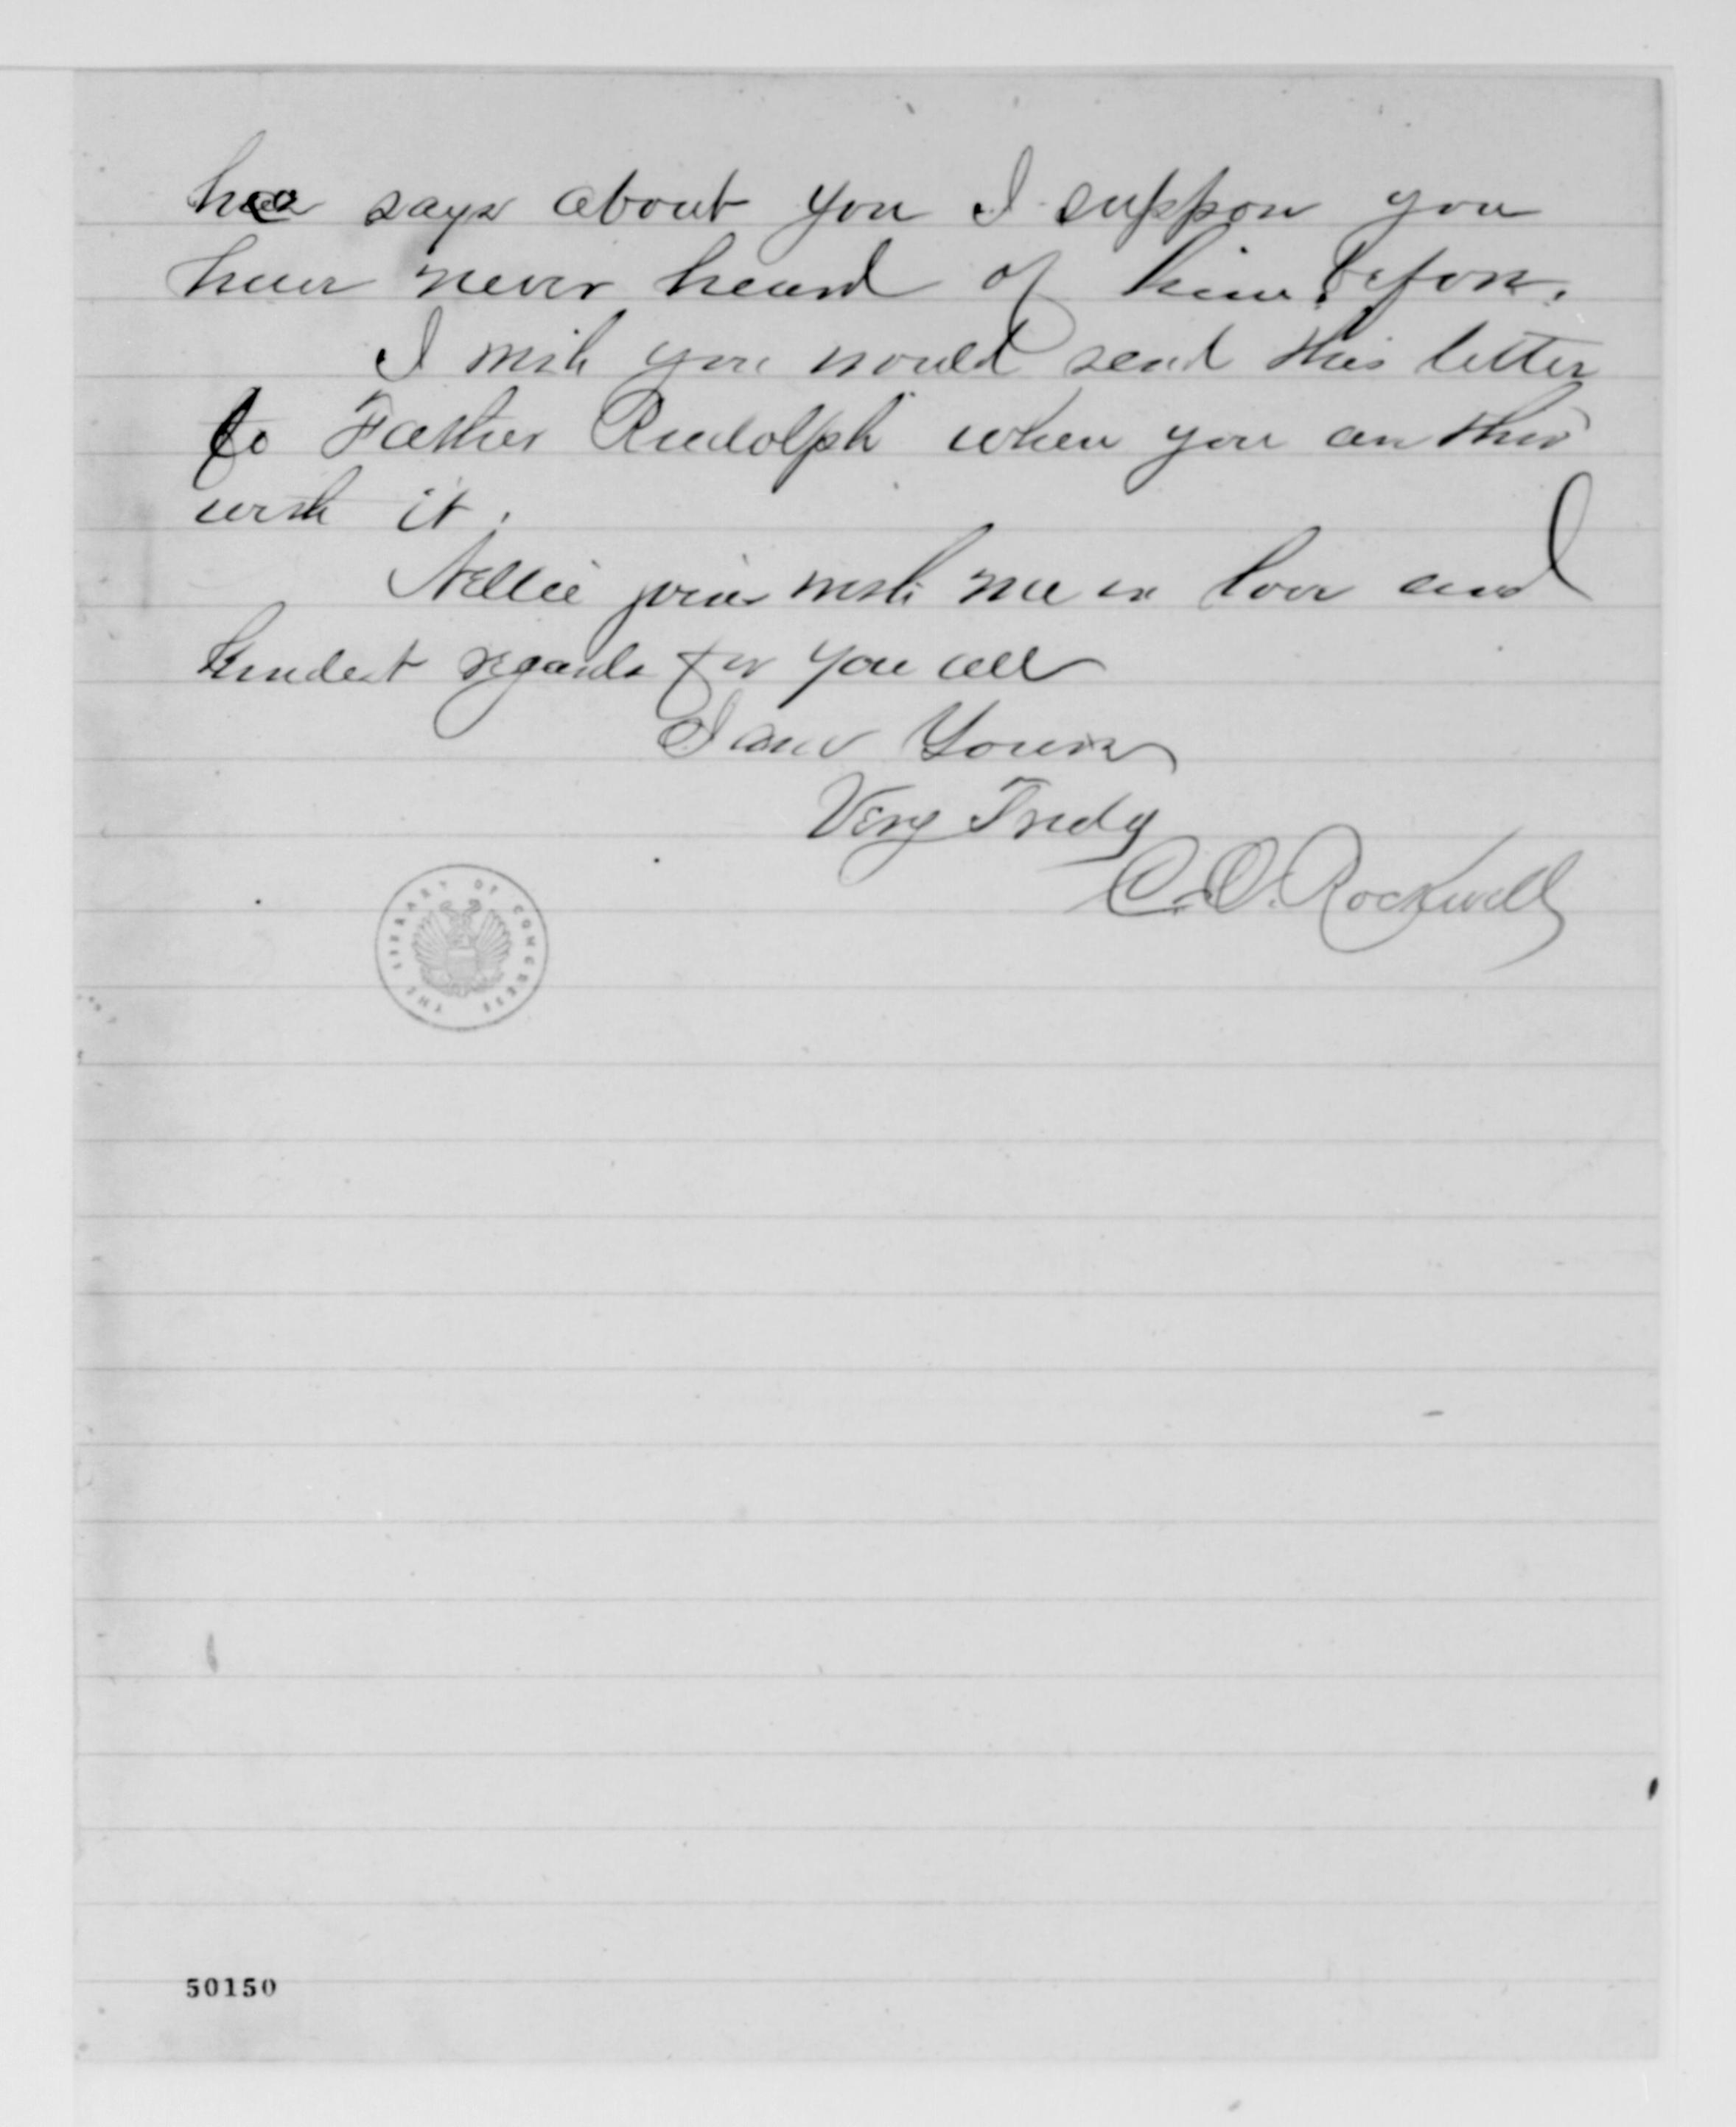 he says about you I suppose you
have never heard of him before.
I wish you would send this letter
to Father Rudolph when you are thro
with it.
Nellie joins with me in love and
kindest regards for you all
I am Yours
Very Truly
C. O. Rockwell
THE LIBRARY OF CONGRESS
50150